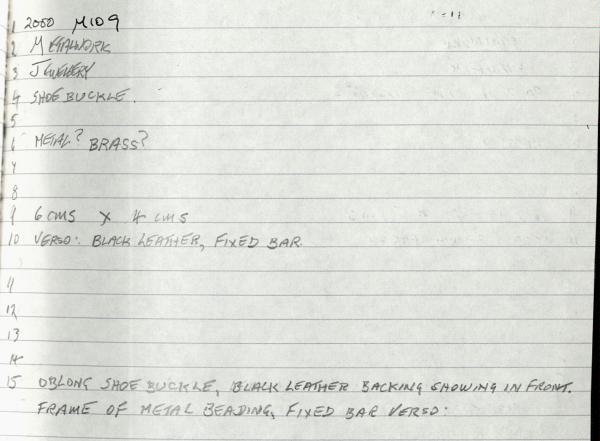 1 2000 M109
2 METALWORK
3 JEWELLERY
4 SHOE BUCKLE.
5
6 METAL? BRASS?
7
8
9 6 CMS X 4 CMS
10 VERSO: BLACK LEATHER, FIXED BAR.
11
12
13
14
15 OBLONG SHOE BUCKLE, BLACK LEATHER BACKING SHOWING IN FRONT.
FRAME OF METAL BEADING, FIXED BAR VERSO: